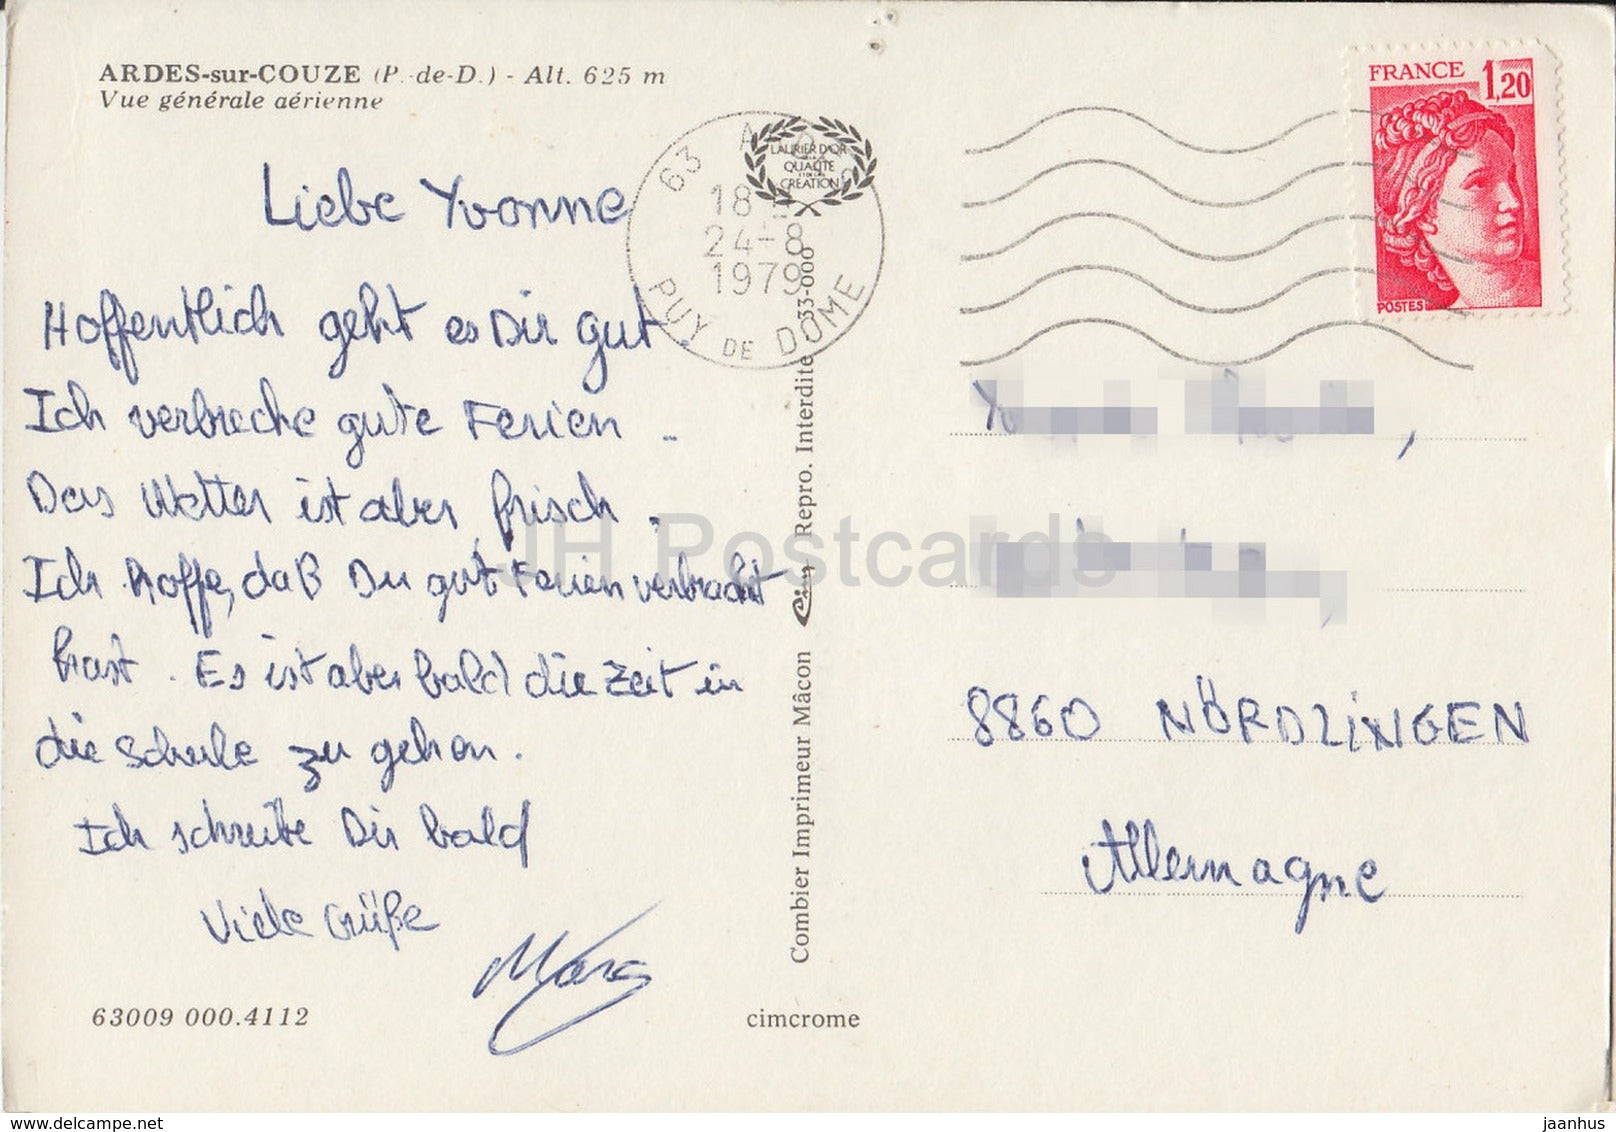 ARDES-sur-COUZE (P.-de-D.) - Alt. 625 m
Vue générale aérienne
Liebe Yvonne
Hoffentlich geht es Dir gut
Ich verbreche gute Ferien.
Das Wetter ist aber frisch.
Ich hoffe, daß Du gut Ferien verbracht
hast. Es ist aber bald die Zeit in
die Schule zu gehen.
Ich schreibe Dir bald
Viele Grüße
Marc
63009 000.4112
cimcrome
63
18
24-8
1979
PUY DE DOME
LAURIER D'OR
QUALITE
CREATION
Combier Imprimeur Mâcon Cim Repro. Interdite 33-000
FRANCE 1,20
POSTES
8860 NÖRDLINGEN
Allemagne
JH Postcards
www.delcampe.net
jaanhus